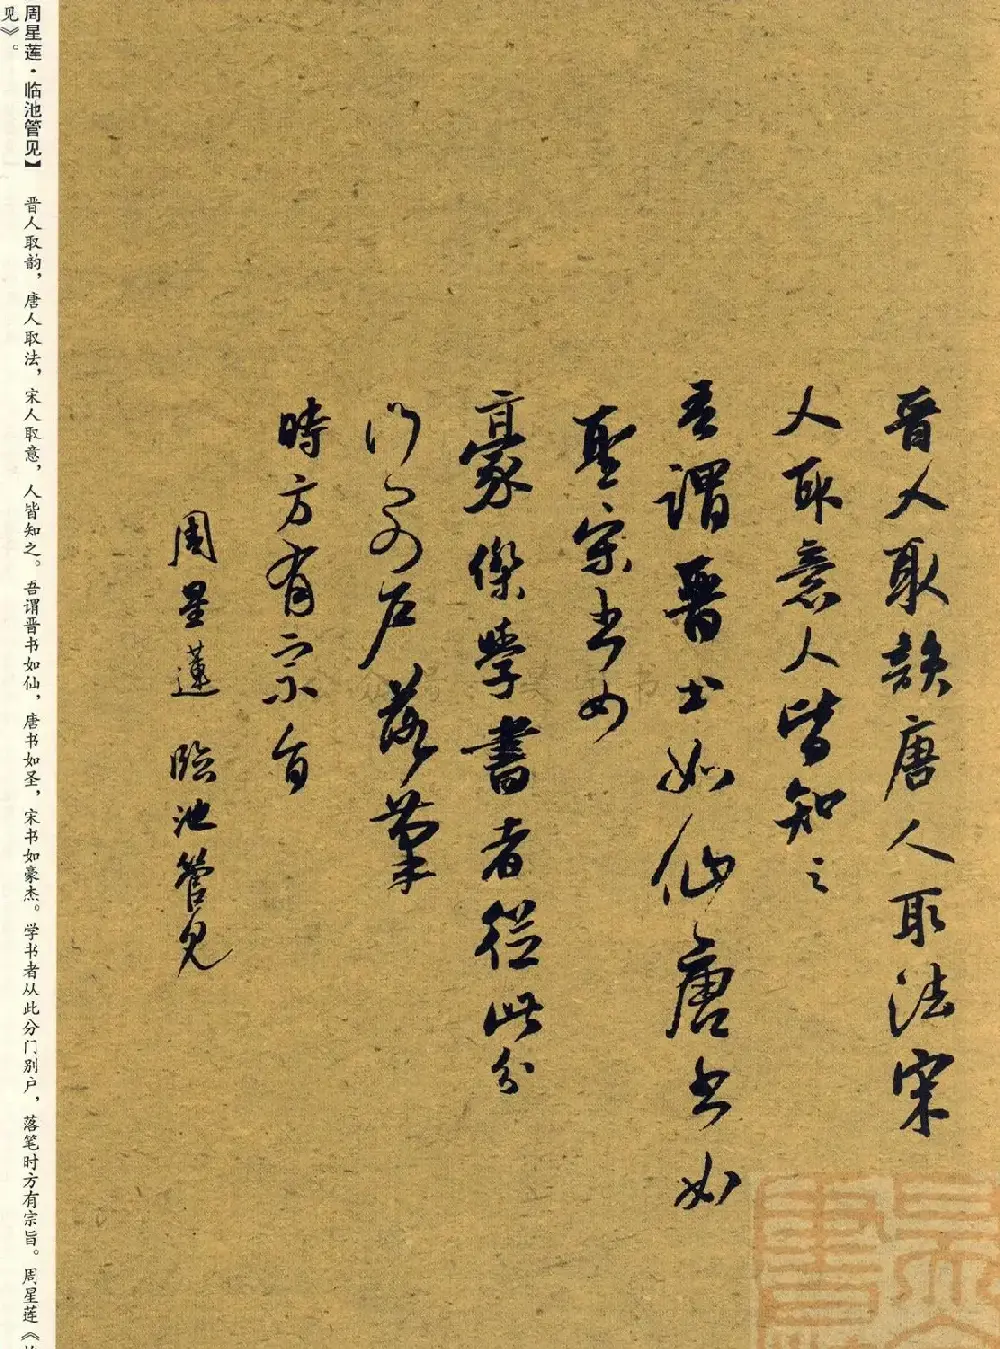 晋人取韻唐人取法宋
人取意人皆知之
吾謂晋书如仙唐书如
聖宋书如
豪傑學書者從此分
门别户落筆
時方有宗旨
周星蓮 臨池管见
周星莲·临池管见】 晋人取韵，唐人取法，宋人取意，人皆知之。吾谓晋书如仙，唐书如圣，宋书如豪杰。学书者从此分门别户，落笔时方有宗旨。周星莲《临
见》。